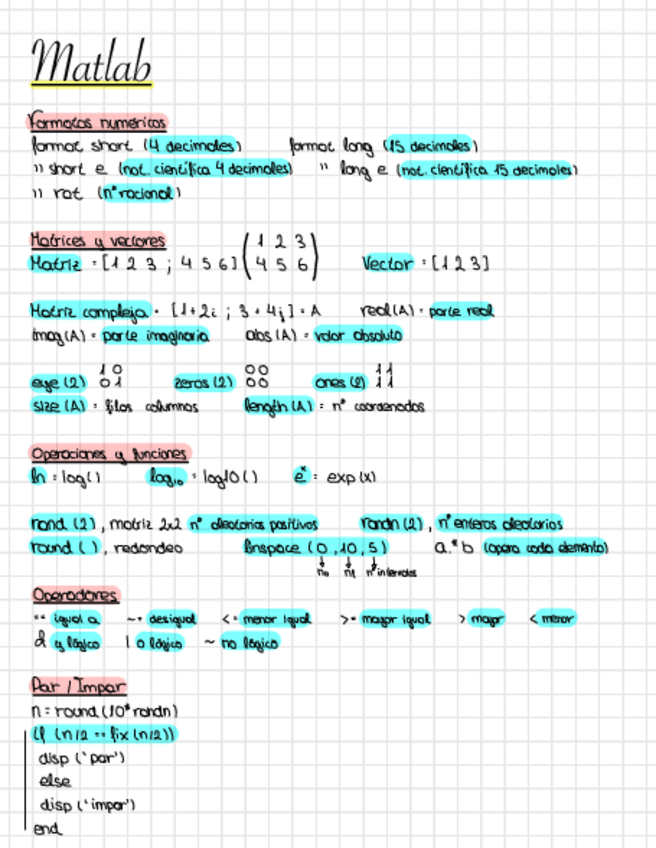 Matlab
Formatos numéricos
format short (4 decimales) format long (15 decimales)
" short e (not. científica 4 decimales) " long e (not. científica 15 decimales)
" rat (nº racional)
Matrices y vectores
Matriz = [1 2 3 ; 4 5 6] (1 2 3
4 5 6) Vector = [1 2 3]
Matriz compleja = [1+2i ; 3+4j] = A real(A) = parte real
imag(A) = parte imaginaria abs(A) = valor absoluto
eye(2) 1 0 zeros(2) 0 0 ones(2) 1 1
0 1 0 0 1 1
size(A) = filas columnas length(A) = nº coordenadas
Operaciones y funciones
ln = log() log10 = log10() e^x = exp(x)
rand(2), matriz 2x2 nº aleatorios positivos randn(2), nº enteros aleatorios
round( ), redondeo linspace(0,10,5) a.*b (opera cada elemento)
n0 n1 nº intervalos
Operadores
== igual a ~= desigual <= menor igual >= mayor igual > mayor < menor
& y lógico | o lógico ~ no lógico
Par / Impar
n = round(10*randn)
if (n/2 == fix(n/2))
disp('par')
else
disp('impar')
end